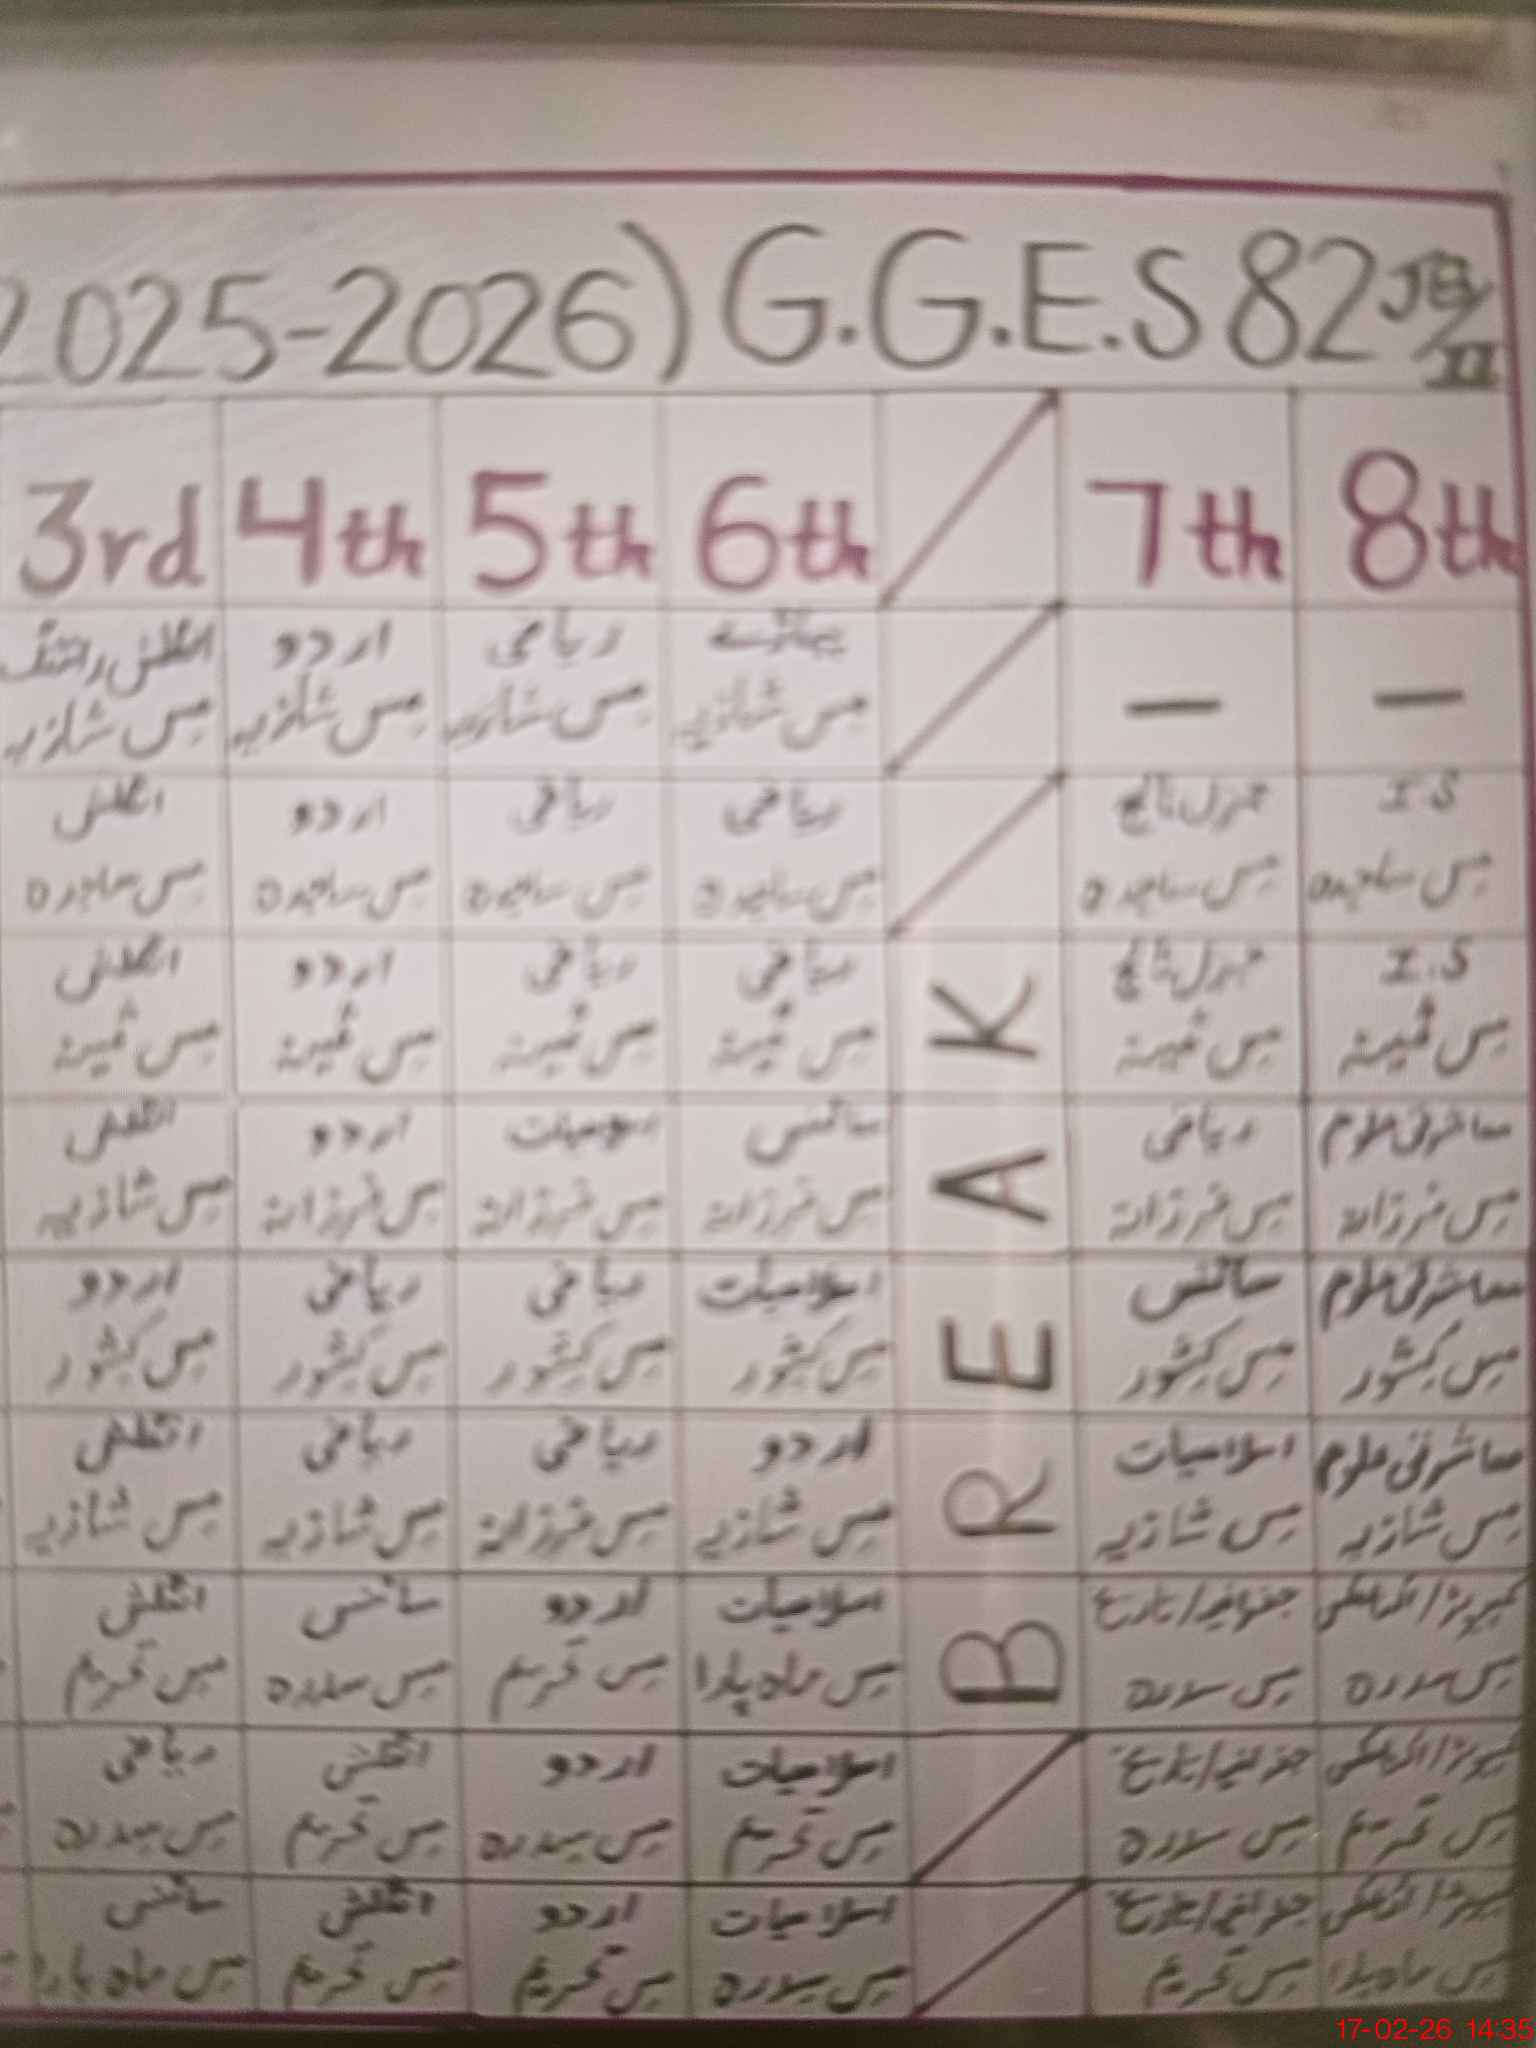 2025-2026) G.G.E.S 82 JB/II
3rd 4th 5th 6th 7th 8th
انگلش رائٹنگ اردو ریاضی پہاڑے — —
مس شازیہ مس شازیہ مس شازیہ مس شازیہ
انگلش اردو ریاضی ریاضی جنرل نالج I.S
مس ساجدہ مس ساجدہ مس ساجدہ مس ساجدہ مس ساجدہ مس ساجدہ
انگلش اردو ریاضی ریاضی جنرل نالج I.S
مس ثمینہ مس ثمینہ مس ثمینہ مس ثمینہ مس ثمینہ مس ثمینہ
انگلش اردو اسلامیات سائنس ریاضی معاشرتی علوم
مس شازیہ مس فرزانہ مس فرزانہ مس فرزانہ مس فرزانہ مس فرزانہ
اردو ریاضی ریاضی اسلامیات سائنس معاشرتی علوم
مس کشور مس کشور مس کشور مس کشور مس کشور مس کشور
انگلش ریاضی ریاضی اردو اسلامیات معاشرتی علوم
مس شازیہ مس شازیہ مس فرزانہ مس شازیہ مس شازیہ مس شازیہ
انگلش سائنس اردو اسلامیات جغرافیہ/تاریخ
مس تحریم مس سدرہ مس تحریم مس ماہ پارا مس سدرہ مس سدرہ
ریاضی انگلش اردو اسلامیات جغرافیہ/تاریخ
مس سدرہ مس تحریم مس سدرہ مس تحریم مس سدرہ مس تحریم
سائنس انگلش اردو اسلامیات جغرافیہ/تاریخ
مس ماہ پارا مس تحریم مس تحریم مس سدرہ مس تحریم مس ماہ پارا
BREAK
17-02-26 14:35